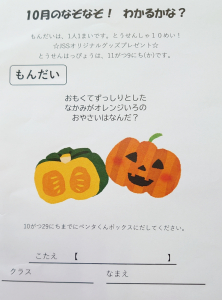 10月のなぞなぞ！ わかるかな？
もんだいは、1人1まいです。とうせんしゃ10めい！
☆JSSオリジナルグッズプレゼント☆
とうせんはっぴょうは、11がつ9にち(か)です。
もんだい
おもくてずっしりとした
なかみがオレンジいろの
おやさいはなんだ？
10がつ29にちまでにペンタくんボックスにだしてください。
こたえ 【
クラス
なまえ